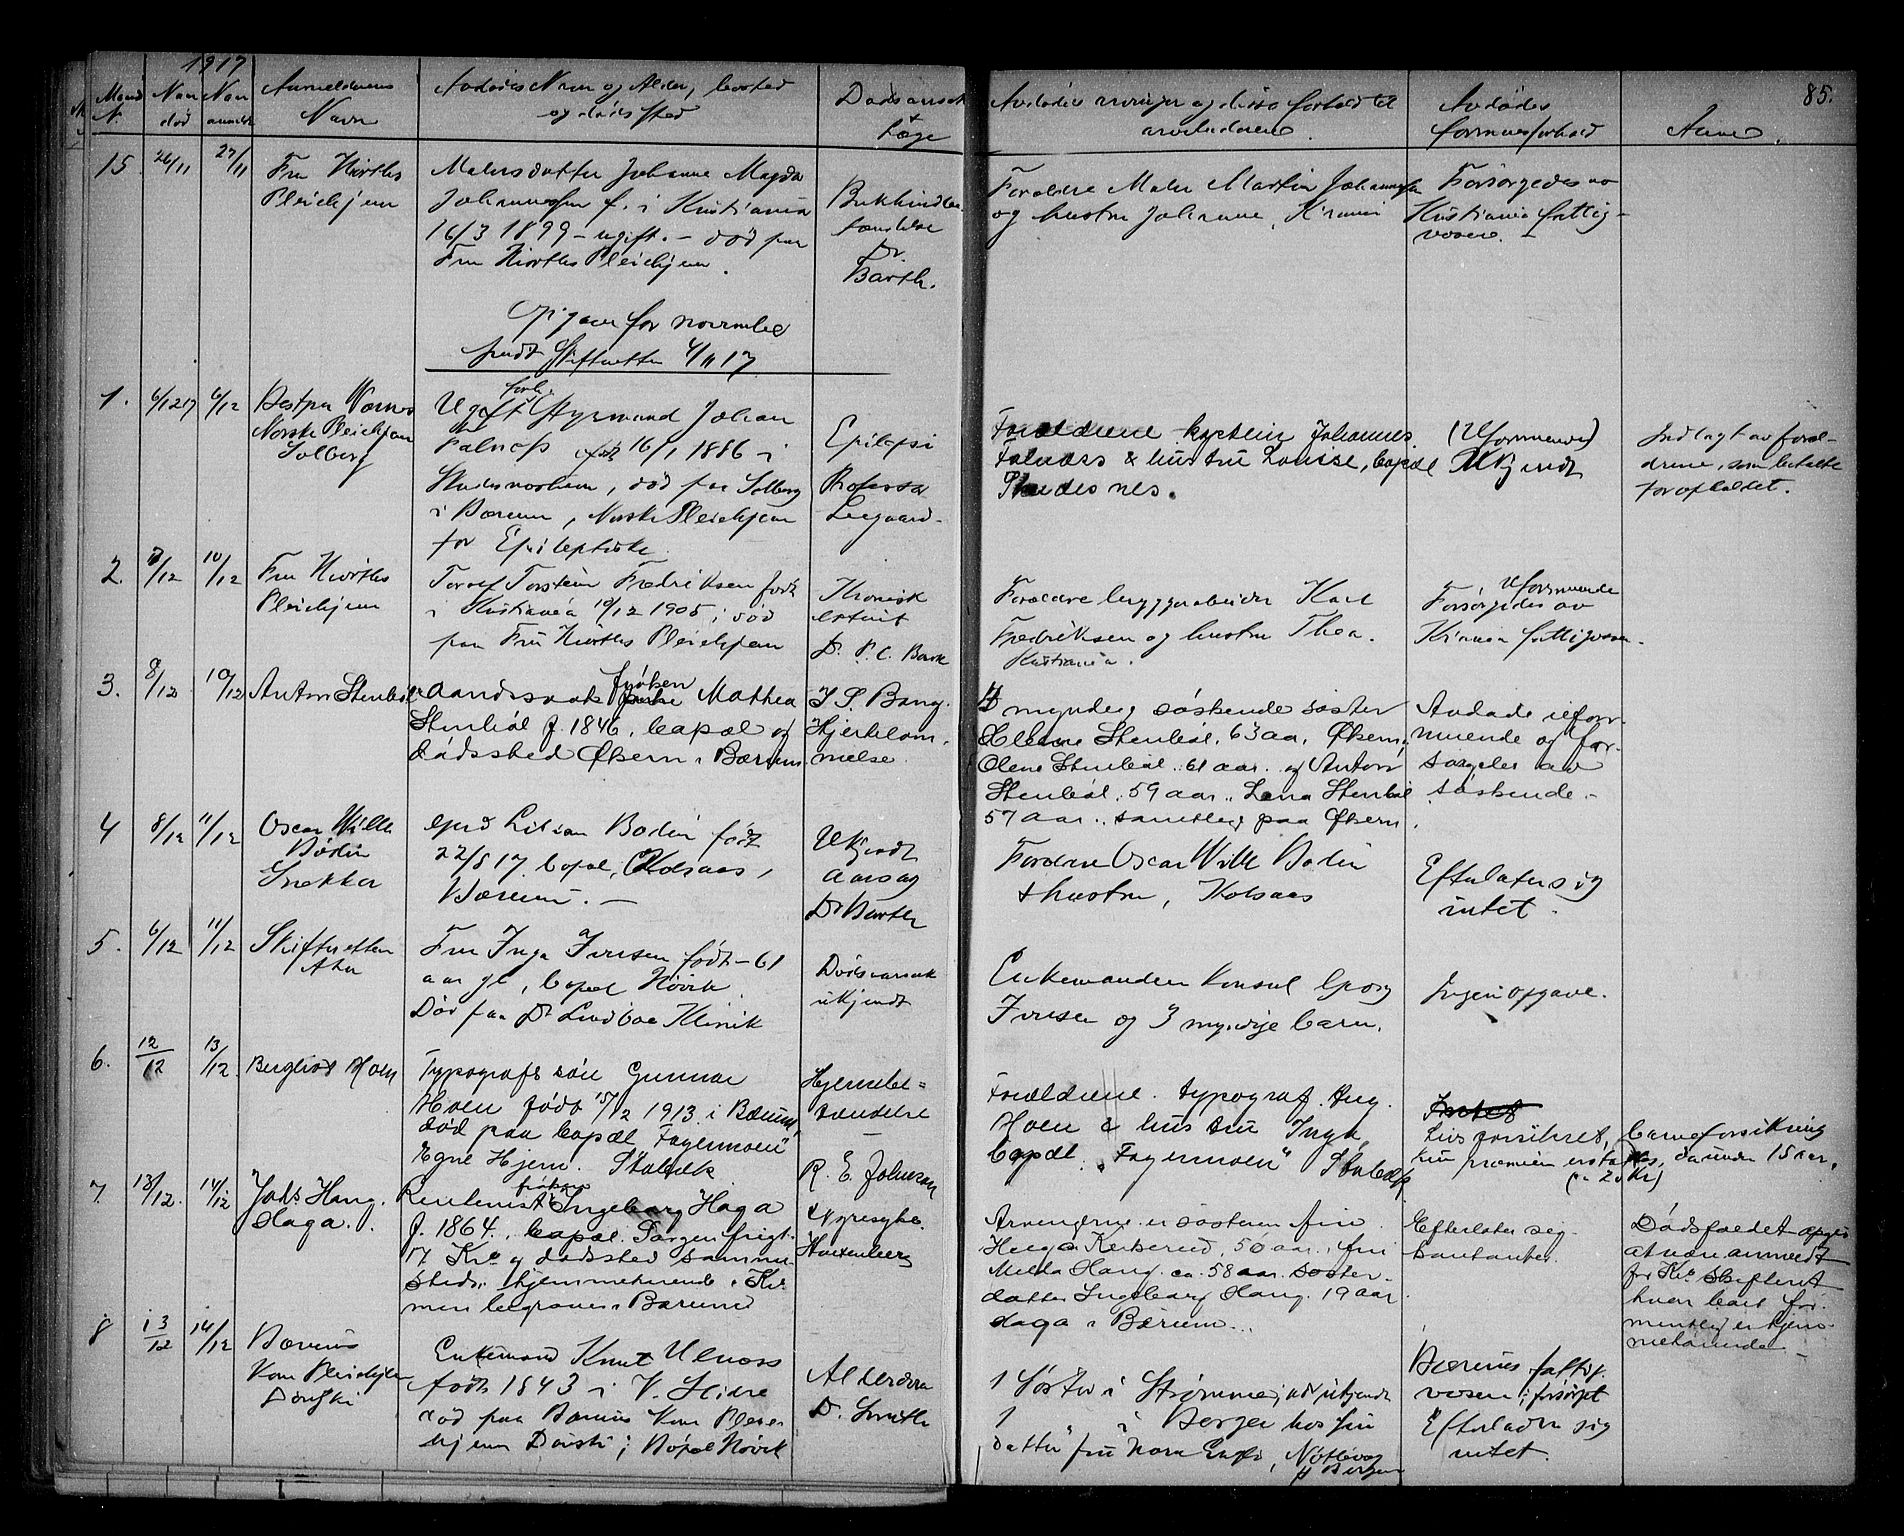 1917
85.
Naar
død
Naar
anmeldt
Anmelderens
Navn
Avdødes Navn og Alder, bosted
og dødssted
Dødsaarsak
+
Læge
Avdødes
formuesforhold
Anm
15
26/11
27/11
Fru Hiorths
Pleiehjem
Malersdatter Johanne Magda
Johannessen f. i Kristiania
16/3 1899 - ugift. - død paa
Fru Hiorths Pleiehjem.
Dr
Barth.
Forældre Maler Martin Johannessen
og hustru Johanne, Kr.ania
Forsørgedes av
Kristiania fattig-
væsen.
Opgave for november
sendt Skifteretten 4/11 17
1.
6/12 17
6/12
Norske Pleiehjem
Solberg
Ugift
forh.
Styrmand Johan
Falnes født 16/1 1886 i
Skudesneshavn, død paa Solberg
i Bærum, Norske Pleiehjem
for Epileptiske.
Epilepsi
Professor
Leegaard.
Forældrene kaptein Johannes
Falnæss & hustru Louise, bopæl
Skudesnes.
(Uformuende)
Ukjendt
Indlagt av foræl-
drene, som betalte
for opholdet.
2.
8/12
10/12
Fru Hiorths
Pleiehjem
Torolf Torstein Fredriksen født
i Kristiania 10/12 1905; død
paa Fru Hiorths Pleiehjem
Kronisk
Dr. P. C. Barth
Forældre byggearbeider Karl
Fredriksen og hustru Thea.
Kristiania.
Uformuende
Forsørgedes av
Kr.ania fattigvæsen.
3.
8/12
10/12
Anton Stenbøl
Aandssvak frøken Mathea
Stenbøl f. 1846, bopæl og
dødssted Øhern i Bærum
I. S. Bang.
Hjertelam-
melse.
4 myndig søskende søster
Helene Stenbøl, 63 aar, Øhern,
Olene Stenbøl. 61 aar. og Anton
Stenbøl, 59 aar., Lena Stenbøl
57 aar., samtlig paa Øhern.
Avdøde ufor-
muende og for-
sørgeles av
søskende.
4
8/12
11/12
Oscar Wilh
Bodin
Snekker
Gerd Lilian Bodin født
22/8 17, bopæl, Kolsaas,
Bærum. -
Ukjendt
aarsag
Dr Barth
Forældrene Oscar Wilh Bodin
& hustru, Kolsaas
Efterlater sig
intet.
5.
6/12
11/12
Skifteretten
Aker
Fru Inga Iversen født - 61
aar gl, bopæl Høvik
Død paa Dr Lindboe Klinik
Dødsaarsak
ukjendt
Enkemanden Konsul Georg
Iversen og 3 myndige barn.
Ingen opgave.
6.
12/12
13/12
Bergliot Hoen
Typografs søn Gunnar
Hoen født 15/2 1913 i Bærum,
død paa bopæl "Fagermoen"
Egne Hjem. Stabæk
Hjernebe-
tændelse
R. E. Johnson
Forældrene. typograf. Aug.
Hoen & hustru Inga,
bopæl. "Fagermoen" Stabæk
Intet
Livsforsikret,
kun præmien erstattes,
(ca 20 Kr)
barneforsikring
da under 15 aar.
7.
13/12.
14/12
Johs Haug.
Haga.
Rentenist frøken Ingeborg Haga
f. 1864., bopæl. Jørgen
17 Kr.a og dødssted samme-
steds. hjemmehørende i Kr.a
men begraves i Bærum
Nyresyke.
Arvingerne er søsteren fru
Helga Kekserud, 50 aar., fru
Milda Haug. ca. 58 aar. søster-
datter Ingeborg Haug. 19 aar
Haga i Bærum..
Efterlater sig
kontanter.
Dødsfaldet opgis
at være anmeldt
for Kr.a Skifteret
hvor boet for-
mentlig er hjem-
mehørende -
8
13/12
14/12
Bærums
Kom Pleiehjem
Dønski
Enkemand Knut Ulnæss
født 1843 i V. Slidre
død paa Bærums Kom Pleie-
hjem Dønski; Bopæl Høvik
Alderdom
Dr. Smith
1 Søster i Strømmen, adr ukjendt
1 " i Bergen hos sin
datter fru Nora Engh, Nøstevog
Bergen
Bærums fattig-
væsen forsørget
Efterlader sig
intet.